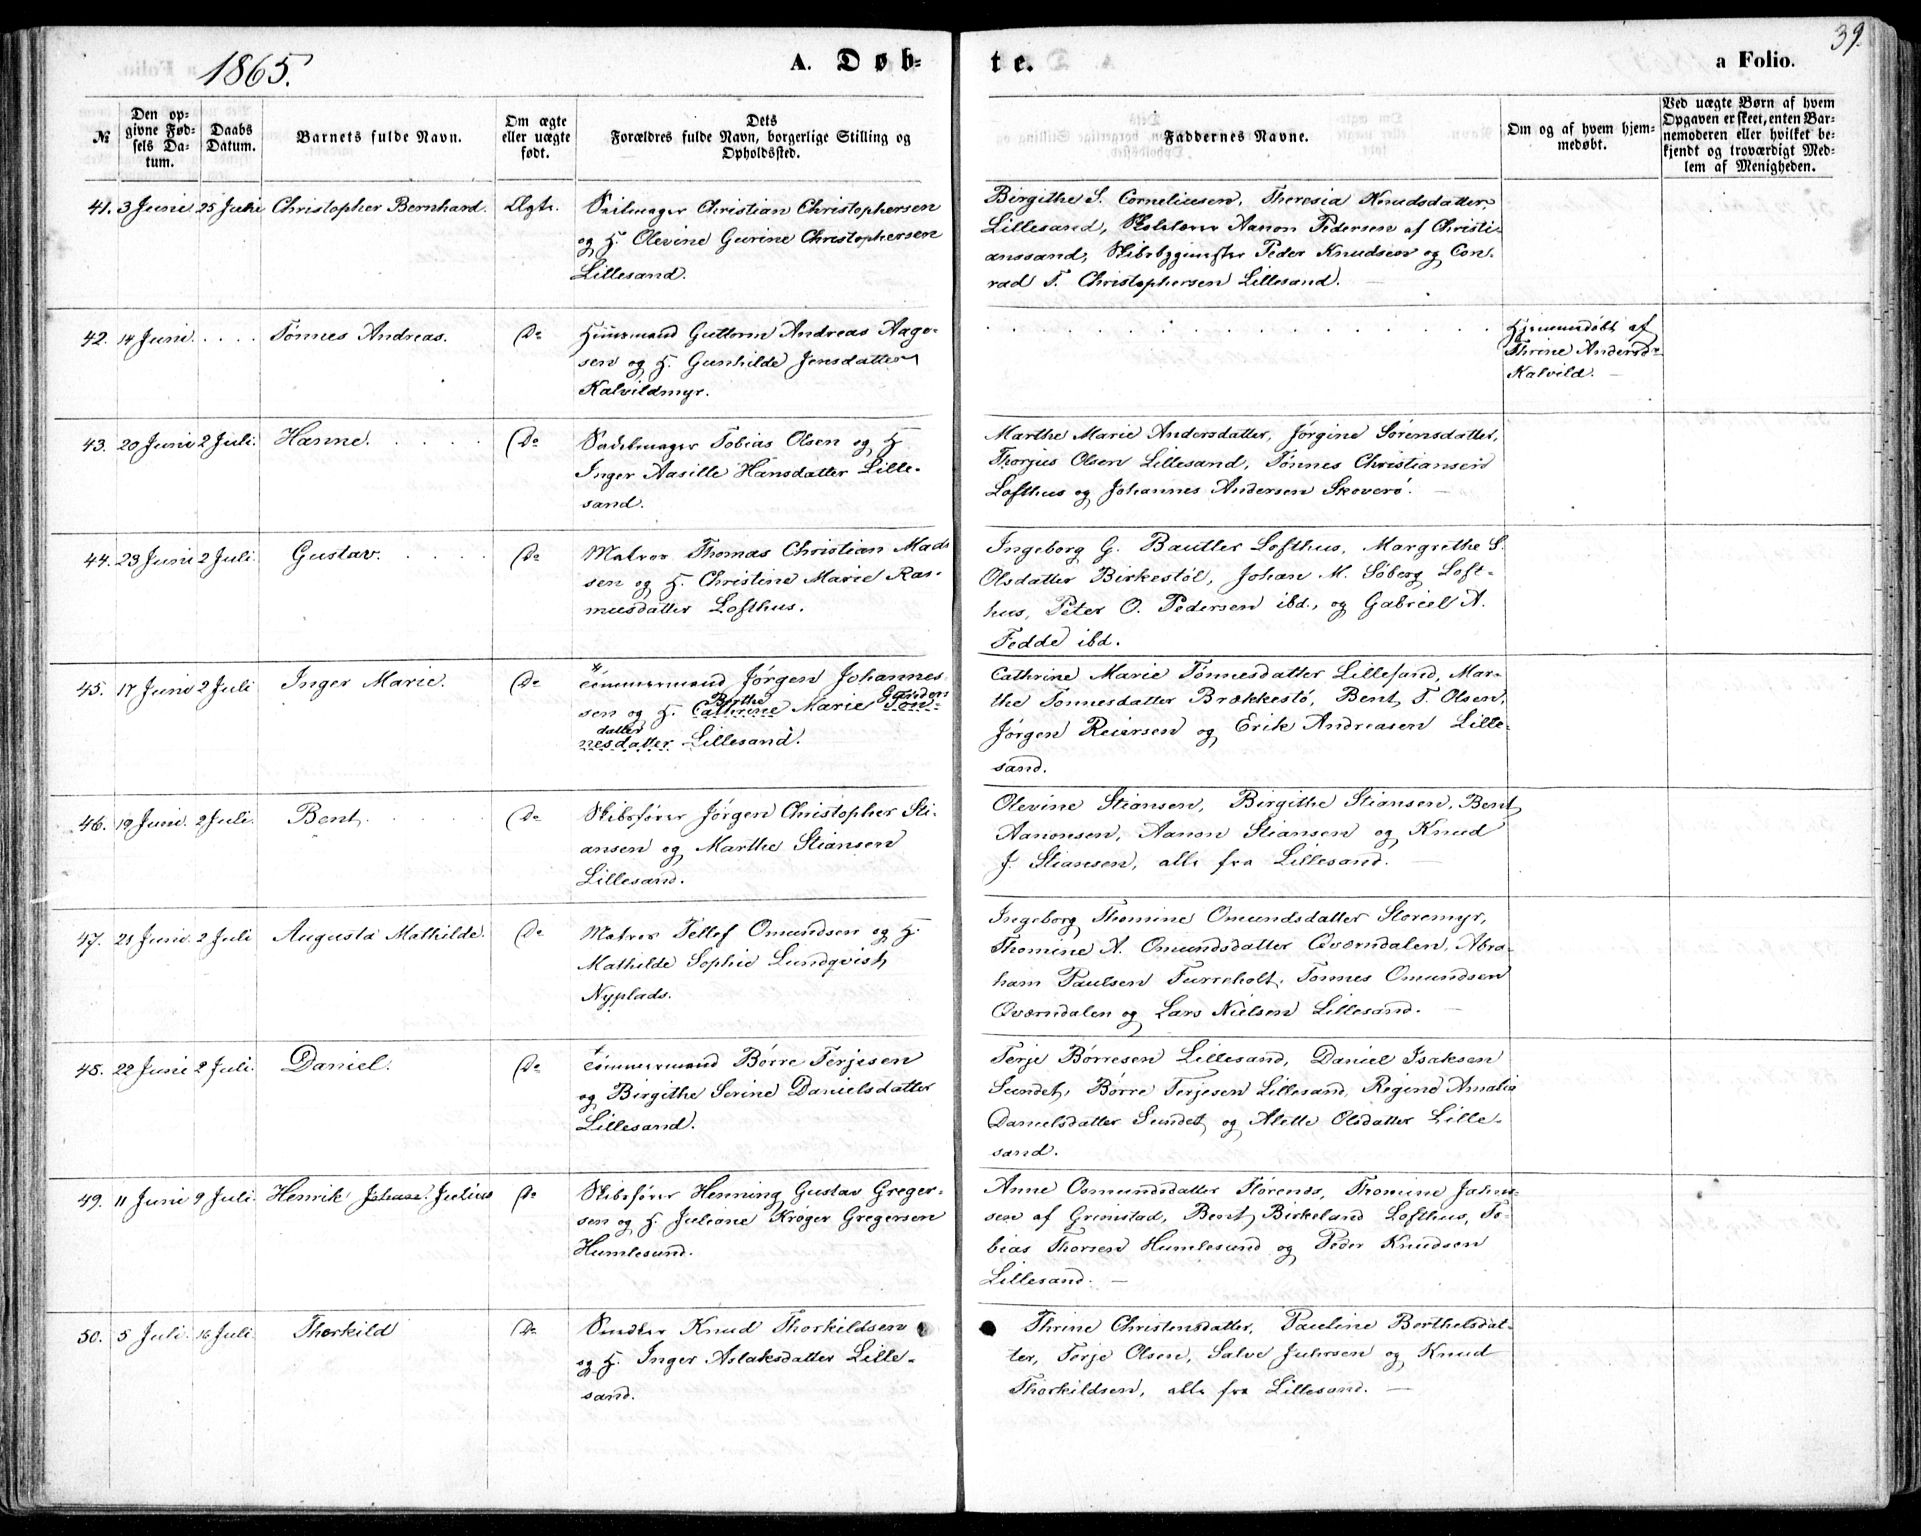 1865.
A. Døb-
te.
a Folio.
39.
№
Den op-
givne Fød-
sels Da-
tum.
Daabs
Datum.
Barnets fulde Navn.
Om ægte
eller uægte
født.
Dets
Forældres fulde Navn, borgerlige Stilling og
Opholdssted.
Faddernes Navne.
Om og af hvem hjem-
medøbt.
Ved uægte Børn af hvem
Opgaven er skeet, enten Bar-
nemoderen eller hvilket be-
kjendt og troværdigt Med-
lem af Menigheden.
41. 3 Juni 25 Juni Christopher Bernhard. Ægte.
Seilmager Christian Christophersen
og H. Olevine Gurine Christophersen
Lillesand.
Birgithe S. Corneliusen, Theresia Knudsdatter
Lillesand, Skolelærer Aanon Pedersen af Christi-
anssand, Skibsbygmester Peder Knudsen og Con-
rad T. Christophersen Lillesand. —
42. 14 Juni . . . . Tønnes Andreas. Do
Huusmand Guttorm Andreas Aage-
sen og H. Gunhilde Jensdatter
Kalvildmyr.
Hjemmedøbt af
Thrine Andersdr
Kalvild. —
43. 20 Juni 2 Juli. Hanne. . . . . Do
Sadelmager Tobias Olsen og H
Inger Aasille Hansdatter Lille-
sand.
Marthe Marie Andersdatter, Jørgine Sørensdatter,
Thorjus Olsen Lillesand, Tønnes Christiansen
Lofthus og Johannes Andersen Skoverø. —
44. 23 Juni 2 Juli. Gustav. . . . . Do
Matros Thomas Christian Mad-
sen og H. Christine Marie Ras-
musdatter Lofthus.
Ingeborg G. Bautler Lofthus, Margrethe S.
Olsdatter Birkestøl, Johan M. Søberg Loft-
hus, Peter O. Pedersen ibd., og Gabriel A.
Fedde ibd.
45. 17 Juni 2 Juli Inger Marie. Do
Tømmermand Jørgen Johannes-
Birthe Gunders
sen og H. Cathrine Marie Tøn-
datter
nesdatter Lillesand.
Cathrine Marie Tønnesdatter Lillesand, Mar-
the Tønnesdatter Brækkestø, Bent T. Olsen,
Jørgen Reiersen og Erik Andreasen Lille-
sand.
46. 19 Juni. 2 Juli. Bent. . . . . Do
Skibsfører Jørgen Christopher Sti-
ansen og Marthe Stiansen
Lillesand.
Olevine Stiansen, Birgithe Stiansen, Bent
Aanonsen, Aanon Stiansen og Knud
J. Stiansen, alle fra Lillesand. —
47. 21 Juni. 2 Juli Augusta Mathilde. Do
Matros Tellef Omundsen og H.
Mathilde Sophie Lundqvist,
Nyplads.
Ingeborg Thomine Omundsdatter Storemyr,
Thomine A. Omundsdatter Qværndalen, Abra-
ham Paulsen Furreholt, Tønnes Omundsen
Qværndalen og Lars Nielsen Lillesand. —
48. 22 Juni 2 Juli. Daniel. Do
Tømmermand Børre Terjesen
og Birgithe Serine Danielsdatter
Lillesand.
Terje Børresen Lillesand, Daniel Isaksen
Sundet, Børre Terjesen Lillesand, Regine Amalie
Danielsdatter Sundet, og Alette Olsdatter Lille-
sand.
49. 11 Juni 9 Juli. Henrik Julius Do
Skibsfører Henning Gustav Greger-
sen og H. Juliane Krøger Gregersen
Humlesund.
Anne Osmundsdatter Florenæs, Thomine Johns-
sen af Grimstad, Bent Birkeland Lofthus, To-
bias Thorsen Humlesund og Peder Knudsen
Lillesand. —
50. 5 Juli. 16 Juli. Thorkild Do
Snedker Knud Thorkildsen
og H. Inger Aslaksdatter Lille-
sand.
Thrine Christensdatter, Pauline Berthelsdat-
ter, Terje Olsen, Salve Juhrsen og Knud
Thorkildsen, alle fra Lillesand. —